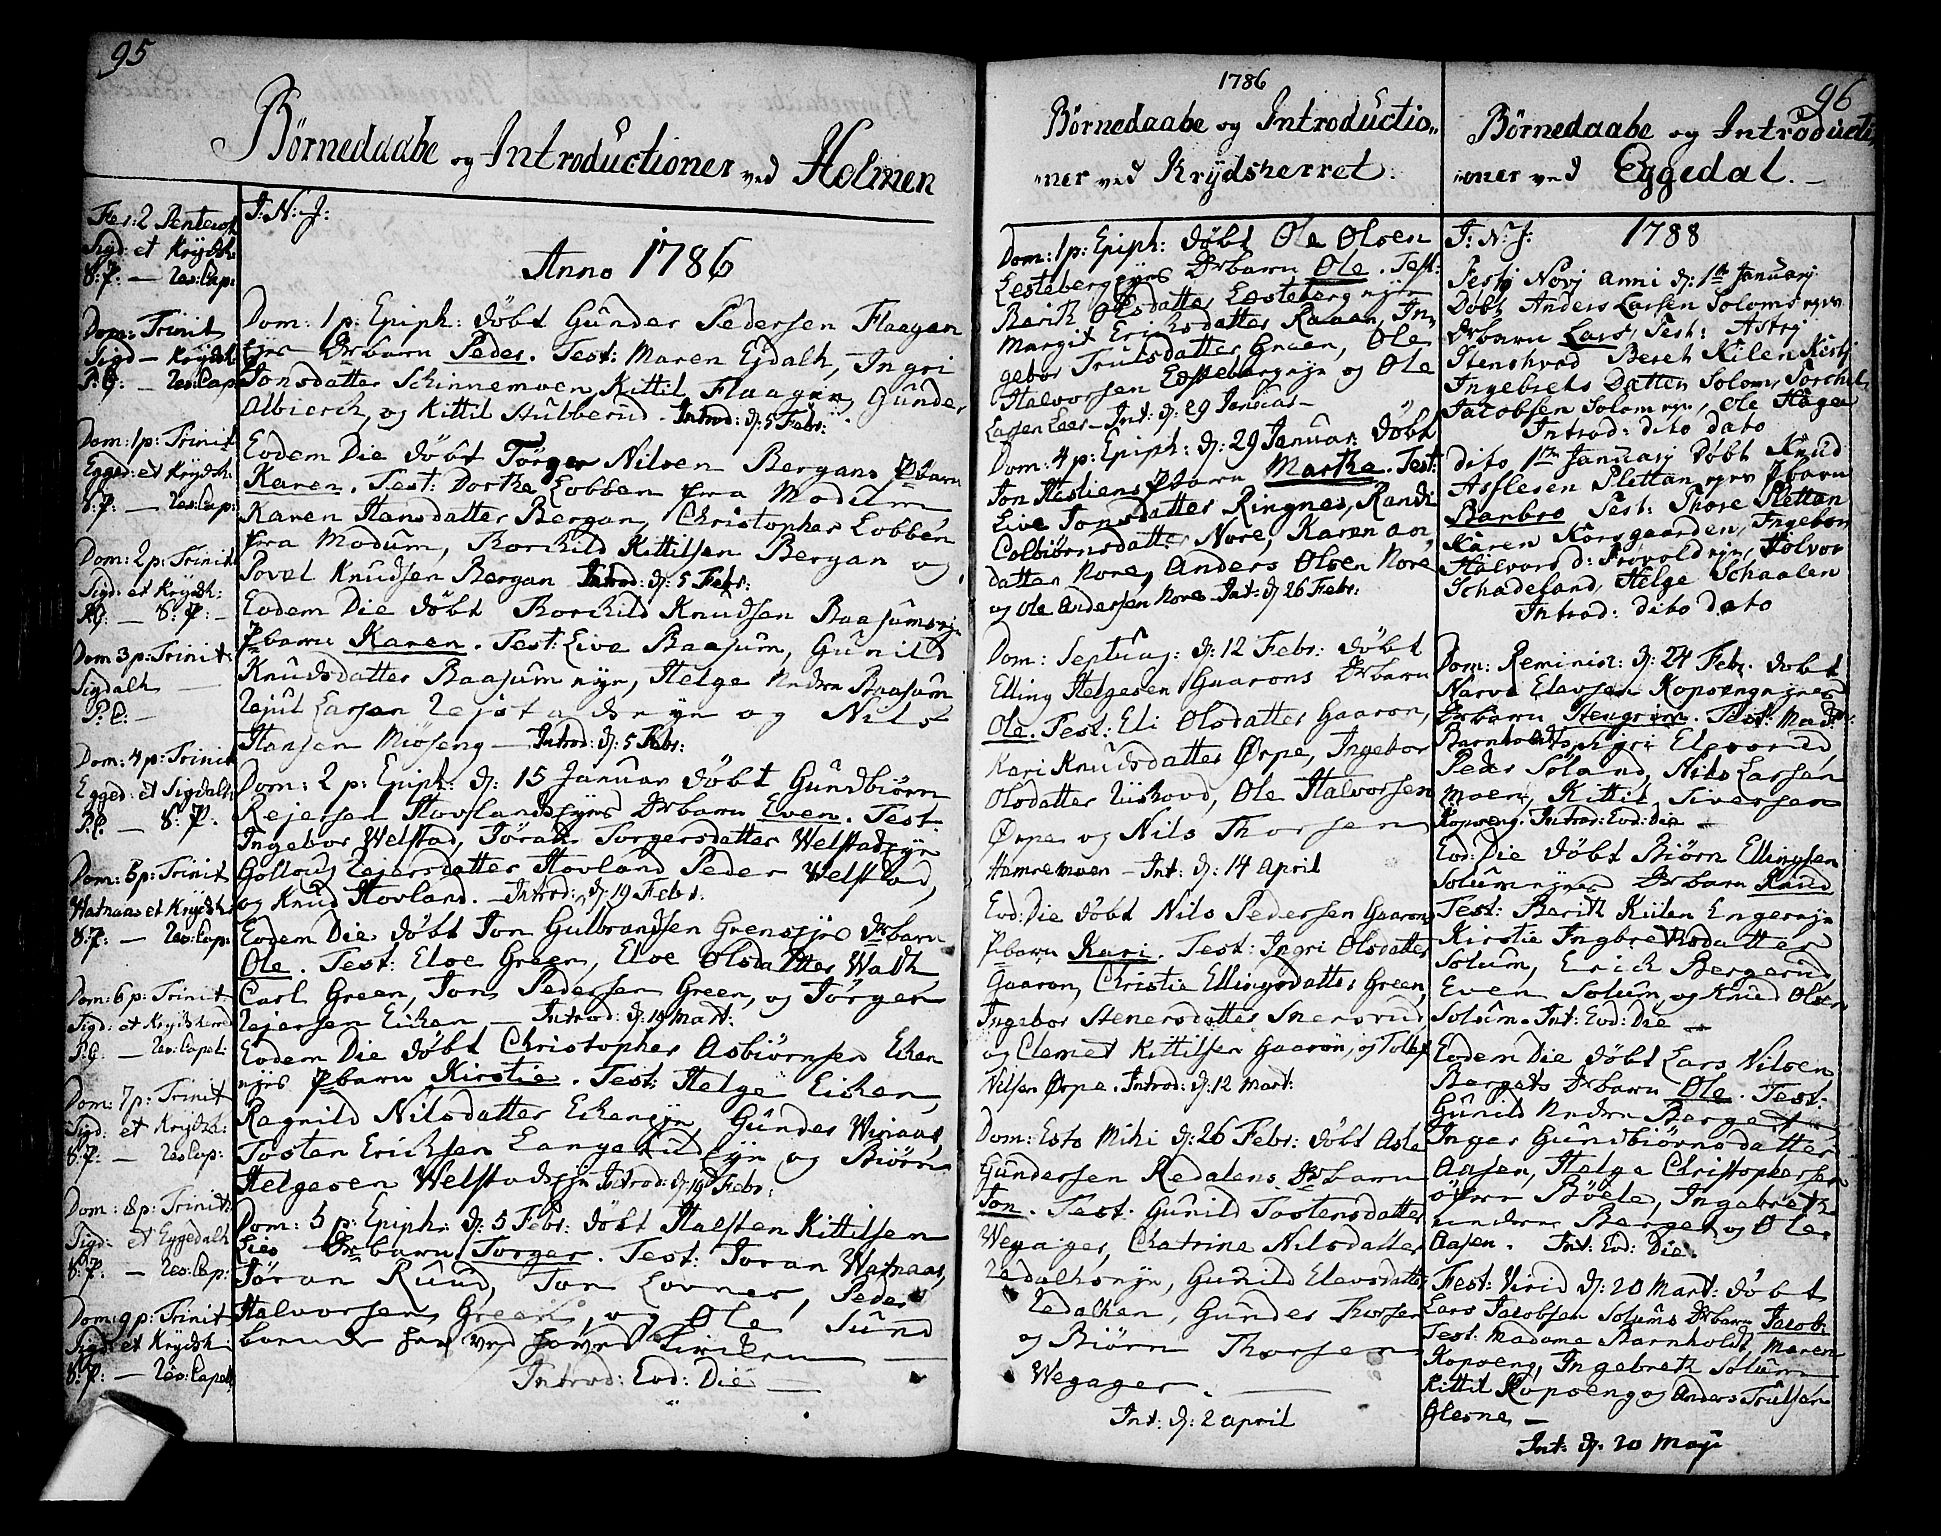 95
Börnedaabe og Introductioner ved Holmen
Fer: 2 Pentecost
Sigd: et Krÿdsh:
S:P: — Res:Cap:
Dom: Trinit
Sigd — Krÿdsh:
P:C: — Res:Cap
Dom: 1 p: Trinit
Egged: et Krÿdsh:
S:P: — Res:Cap:
Dom: 2 p: Trinit
Sigd: et Krÿdsh:
P:C: — S:P: —
Dom 3 p: Trinit:
Sigdalh —
P:C: —
Dom: 4 p: Trinit
Egged: et Sigdalh:
P:C. — S:P.
Dom: 5 p: Trinit
Watnaas et Krÿdsh:
S:P. — Res:Cap:
Dom: 6 p: Trinit
Sigd: et Krÿdsherred
P:C. — Res:Capel:
Dom: 7 p: Trinit
Sigd: et Krÿdsh:
S:P. — Res:Cap:
Dom: 8 p: Trinit:
Sigd: et Eggedalh
S:P. — Res:Cap:
Dom: 9 p: Trinit
Sigd: et Krÿdsh:
S:P. — Res:Capel:
J: N: J:
Anno 1786
Dom: 1 p: Epiph: döbt Gunder Pedersen Flaagan
Ejes Drbarn Peder. Test: Maren Ejdalh, Ingri
Jonsdatter Schinnemoen, Kittil Flaagan, Gunder
Albierch, og Kittil Stubberud — Introd: d: 5 Febr:
Eodem Die döbt Törger Nilsen Bergans Pbarn
Karen. Test: Dorthe Lobben fra Modum,
Karen Hansdatter Bergan, Christopher Lobben
fra Modum, Thorchild Kittilsen Bergan og
Povel Knudsen Bergan Introd: d: 5 Febr:
Eodem Die döbt Thorchild Knudsen Baasumseje
Pbarn Karen. Test: Live Baasum, Gunild
Knudsdatter Baasum eje, Helge Nedre Baasum
Rejul Larsen og Nils
Hansen Miöseng — Introd: d: 5 Febr:
Dom: 2 p: Epiph: d: 15 Januar döbt Gundbiörn
Rejersen Hovlandsejes Drbarn Even. Test:
Ingebor Welstad, Jöran Torgersdatter Welstadeje
Gollou Rejersdatter Hovland Peder Welstad,
og Knud Hovland. — Introd: d: 19 Febr:
Eodem Die döbt Jon Gulbrandsen Grensejes Drbarn
Ole. Test: Eloe Green, Eloe Olsdatter Walh
Carl Green, Jon Pedersen Green, og Jörgen
Rejersen Eichen, — Introd: d: 19 Mart:
Eodem Die döbt Christopher Asbiörnsen Eken
ejes Pbarn Kirstie. Test: Helge Eichen,
Ragnild Nilsdatter Eicheneje, Gunder Winaas
Tosten Erichsen Langerudeje og Biörn
Helgesen Welstadeje Introd: d: 19 Febr:
Dom: 5 p: Epiph: d: 5 Febr: döbt Halsten Kittilsen
Lies Drbarn Torger. Test: Joran Watnaas,
Jöran Ruud, Jon Lovnes, Peder
Halvorsen Green, og Ole Sund
barnede her ved hoved Kirken —
Introd: Eod: Die —
1786
Börnedaabe og Introductio„
„ner ved Krÿdsherret:
Dom: 1 p: Epiph: döbt Ole Olsen
Lestebergejes Drbarn Ole. Test:
Berit Olsdatter Lesteberg eje
Margit Erichsdatter Raaen, In„
gebor Trulsdatter Gruen, Ole
Halvorsen Lestebergeje og Ole
Larsen Leer — Int: d: 29 Januar —
Dom: 4 p: Epiph: d: 29 Januar: döbt
Jon Hestiens Pbarn Marthe. Test:
Live Jonsdatter Ringnes, Randi
Colbiörnsdatter Nore, Karen an„
datter Nore, Anders Olsen Nore
og Ole Andersen Nore — Int: d: 26 Febr:
Dom: Septuag: d: 12 Febr: döbt
Elling Helgesen Gaarons Drbarn
Ole. Test: Eli Olsdatter Gaaron,
Kari Knudsdatter Ørpe, Ingebor
Olsdatter Riishovd, Ole Halvorsen
Ørpe og Nils Thorsen
Hamremoen — Int: d: 14 April
Eod: Die döbt Nils Pedersen Gaarons
Pbarn Kari. Test: Ingri Olsdatter
Gaaron, Christie Ellingsdatter Green,
Ingebor Stenersdatter Snersrud
og Clemet Kittilsen Gaaron, og Tollef
Nilsen Ørpe. Introd: d: 12 Mart:
Dom: Esto Mihi d: 26 Febr: döbt Asle
Gundersen Redalens Drbarn
Jon. Test: Gunild Tostensdatter
Wegager, Chatrine Nilsdatter
Redalhseje, Gunild Elevsdatter
Redalhen, Gunder Thorsen
og Biörn Thorsen
Wegager. —
Int: d: 2 April
96
Börnedaabe og Introducti„
„oner ved Eggedal. —
J: N: J: 1788
Festj Novj anni d: 1te Januarj
Döbt Anders Larsen Soloms ejes
Drbarn Lars, Test: Astrj
Stenshord Bereth Kilen Kistj
Ingebrets Datter Solom, Torchel
Jacobsen Solomeje, Ole Hagen
Introd: dito dato
dito 1te Januarj Döbt Knud
Asflesen Plettan ejes Pbarn
Barbro Test: Thore Plettan
Karen Korsgaarden, Ingebor
Halvors d: Frøvold eje, Halvor
Schadeland, Helge Schaalen
Introd: dito dato
Dom: Reminisc: d: 24 Febr. döbt
Narve Elevsen Kopsengejes
Drbarn Stengrim. Test: Madm:
Barnholdt, Sigri Elsvord,
Peder Söland, Nils Larsen
Moen, Kittil Siversen
Kopseng. Introd: Eod: Die —
Eod: Die döbt Biörn Ellingsen
Solumejes Drbarn Knud
Test: Berith Kiilen Engereje
Kirstie Ingbrethsdatter
Solum, Erich Bergerud,
Even Solum, og Knud Olsen
Solum. Int: Eod: Die —
Eodem Die döbt Lars Nilsen
Bergets Drbarn Ole. Test:
Gunild Nedre Berget
Inger Gundbiörnsdatter
Aasen, Helge Christophersen
öfvre Böele, Ingebreth
nedre Berget og Ole
Aasen. Int: Eod: Die.
Fest: Virid d: 20 Mart: döbt
Lars Jacobsen Solums Drbarn Jacob:
Test: Madame Barnholdt, Maren
Kopseng, Ingebreth Solum
Kittil Kopseng og Anders Trulsen
Glesne, —
Int: d: 20 Maji